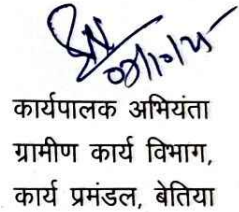 कार्यपालक अभियंता
ग्रामीण कार्य विभाग,
कार्य प्रमंडल, बेतिया